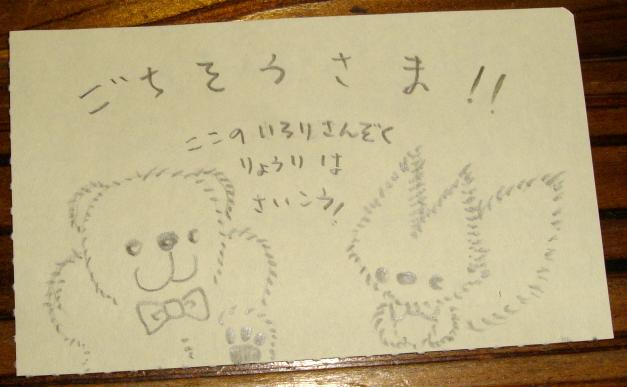 ごちそうさま!!
ここのいろりさんぞく
りょうりは
さいこう!